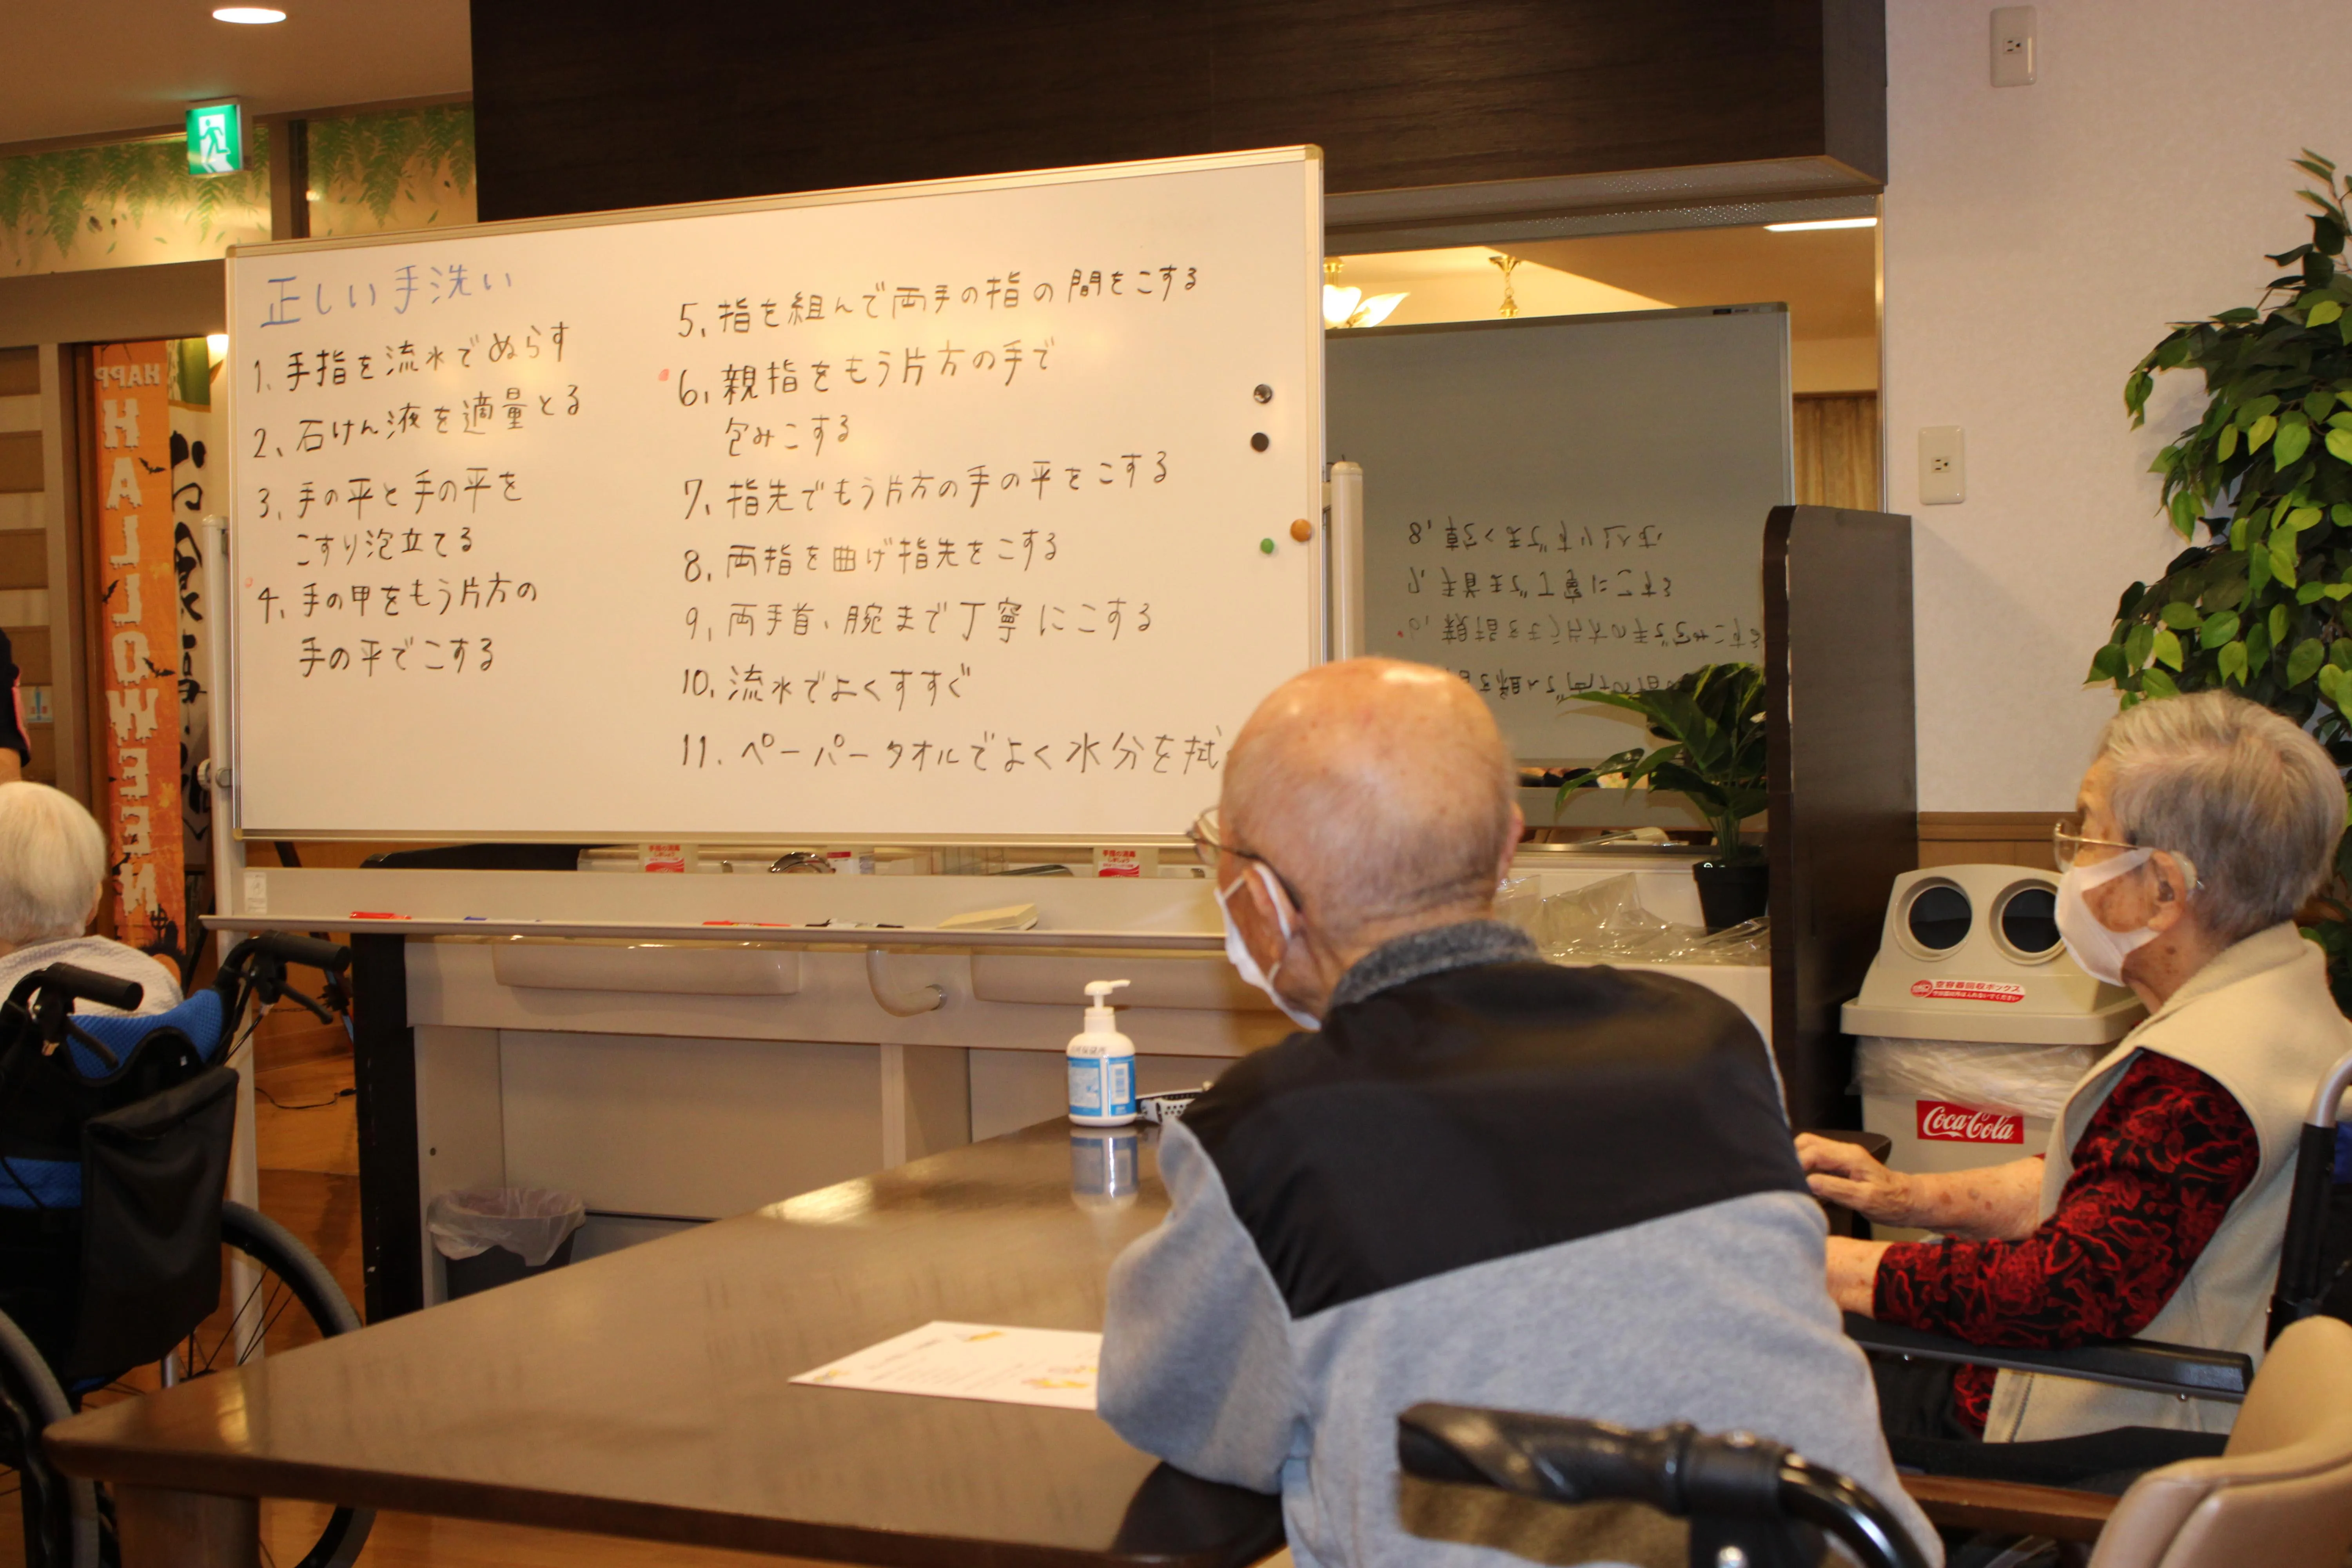 正しい手洗い
1、手指を流水でぬらす
2、石けん液を適量とる
3、手の平と手の平を
こすり泡立てる
4、手の甲をもう片方の
手の平でこする
5、指を組んで両手の指の間をこする
6、親指をもう片方の手で
包みこする
7、指先でもう片方の手の平をこする
8、両指を曲げ指先をこする
9、両手首、腕まで丁寧にこする
10、流水でよくすすぐ
11、ペーパータオルでよく水分を拭
HAPP
HALLOWEEN
空容器回収ボックス
Coca-Cola